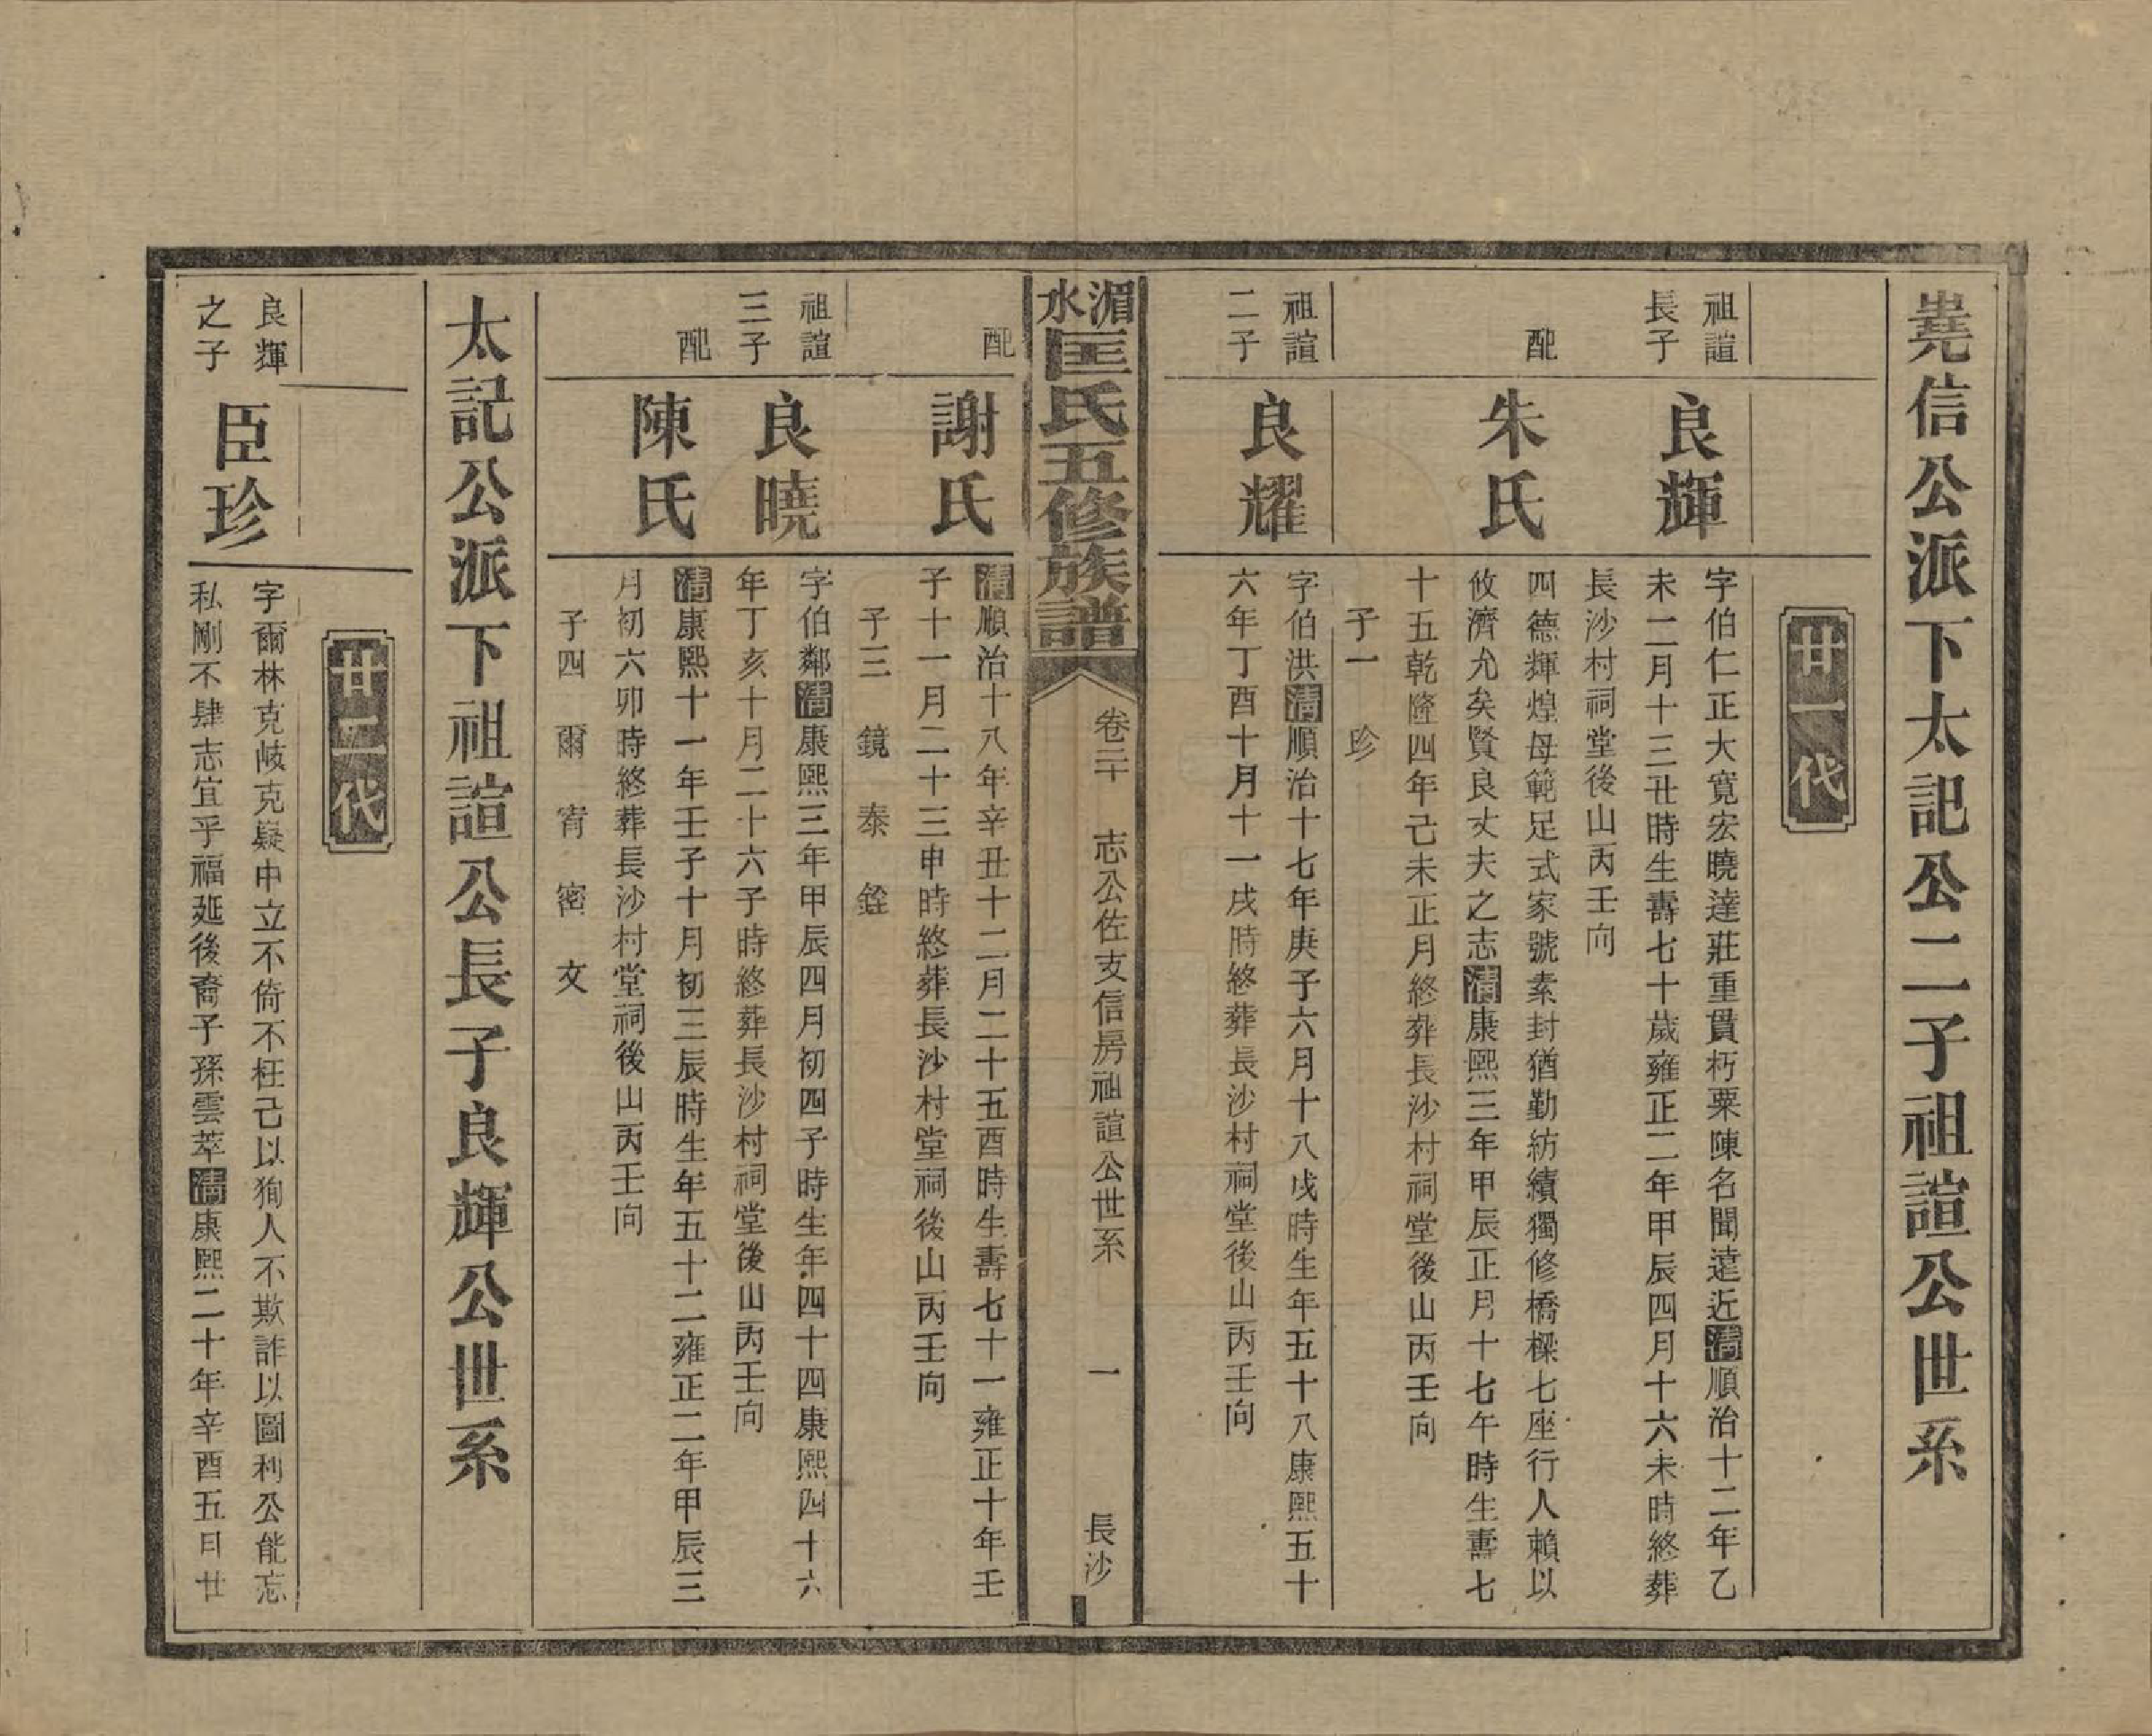 堯信公派下太記公二子祖諠公世系
廿一代
祖諠
長子
良輝
字伯仁正大寬宏曉達莊重貫朽粟陳名聞遠近清順治十二年乙
未二月十三丑時生壽七十歲雍正二年甲辰四月十六未時終葬
長沙村祠堂後山丙壬向
配
朱氏
四德輝煌母範足式家號素封猶勤紡績獨修橋樑七座行人賴以
攸濟允矣賢良丈夫之志清康熙三年甲辰正月十七午時生壽七
十五乾隆四年己未正月終葬長沙村祠堂後山丙壬向
子一 珍
祖諠
二子
良耀
字伯洪清順治十七年庚子六月十八戌時生年五十八康熙五十
六年丁酉十月十一戌時終葬長沙村祠堂後山丙壬向
湄水
匡氏五修族譜
卷三十 志公佐支信房祖諠公世系 一 長沙
配
謝氏
清順治十八年辛丑十二月二十五酉時生壽七十一雍正十年壬
子十一月二十三申時終葬長沙村堂祠後山丙壬向
子三 鏡 泰 銓
祖諠
三子
良曉
字伯鄰清康熙三年甲辰四月初四子時生年四十四康熙四十六
年丁亥十月二十六子時終葬長沙村祠堂後山丙壬向
配
陳氏
清康熙十一年壬子十月初三辰時生年五十二雍正二年甲辰三
月初六卯時終葬長沙村堂祠後山丙壬向
子四 爾 宵 密 文
太記公派下祖諠公長子良輝公世系
廿二代
良輝
之子
臣珍
字爾林克岐克嶷中立不倚不枉己以狥人不欺詐以圖利公能忘
私剛不肆志宜乎福延後裔子孫雲萃清康熙二十年辛酉五月廿